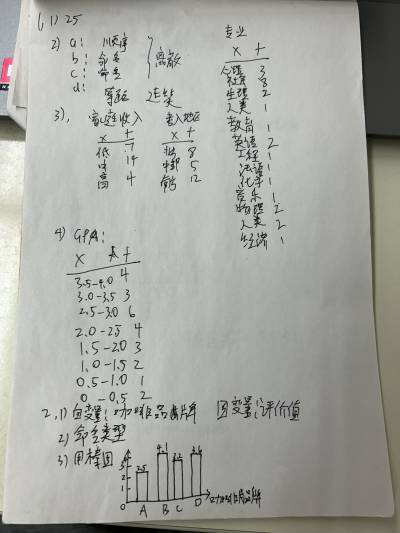 (1) 25
2) a: 顺序
b: 命名
c: 命名
离散
d: 等距 连续
3), 家庭收入
x f
低 7
中 14
高 4
来自地区
x f
北 8
中部 5
南 12
专业
x f
心理 3
8
生理 2
人类 1
教育 1
英语 2
工程 1
法语 1
化学 1
音乐 1
物理 2
人类 2
经济 1
4) GPA:
x f
3.5-4.0 4
3.0-3.5 3
2.5-3.0 6
2.0-2.5 4
1.5-2.0 3
1.0-1.5 2
0.5-1.0 1
0-0.5 2
2, 1) 自变量: 咖啡品牌 因变量: 评价值
2) 命名类型
3) 用棒图
2.5 4.1 3.2 3.6
0 A B C D 咖啡品牌